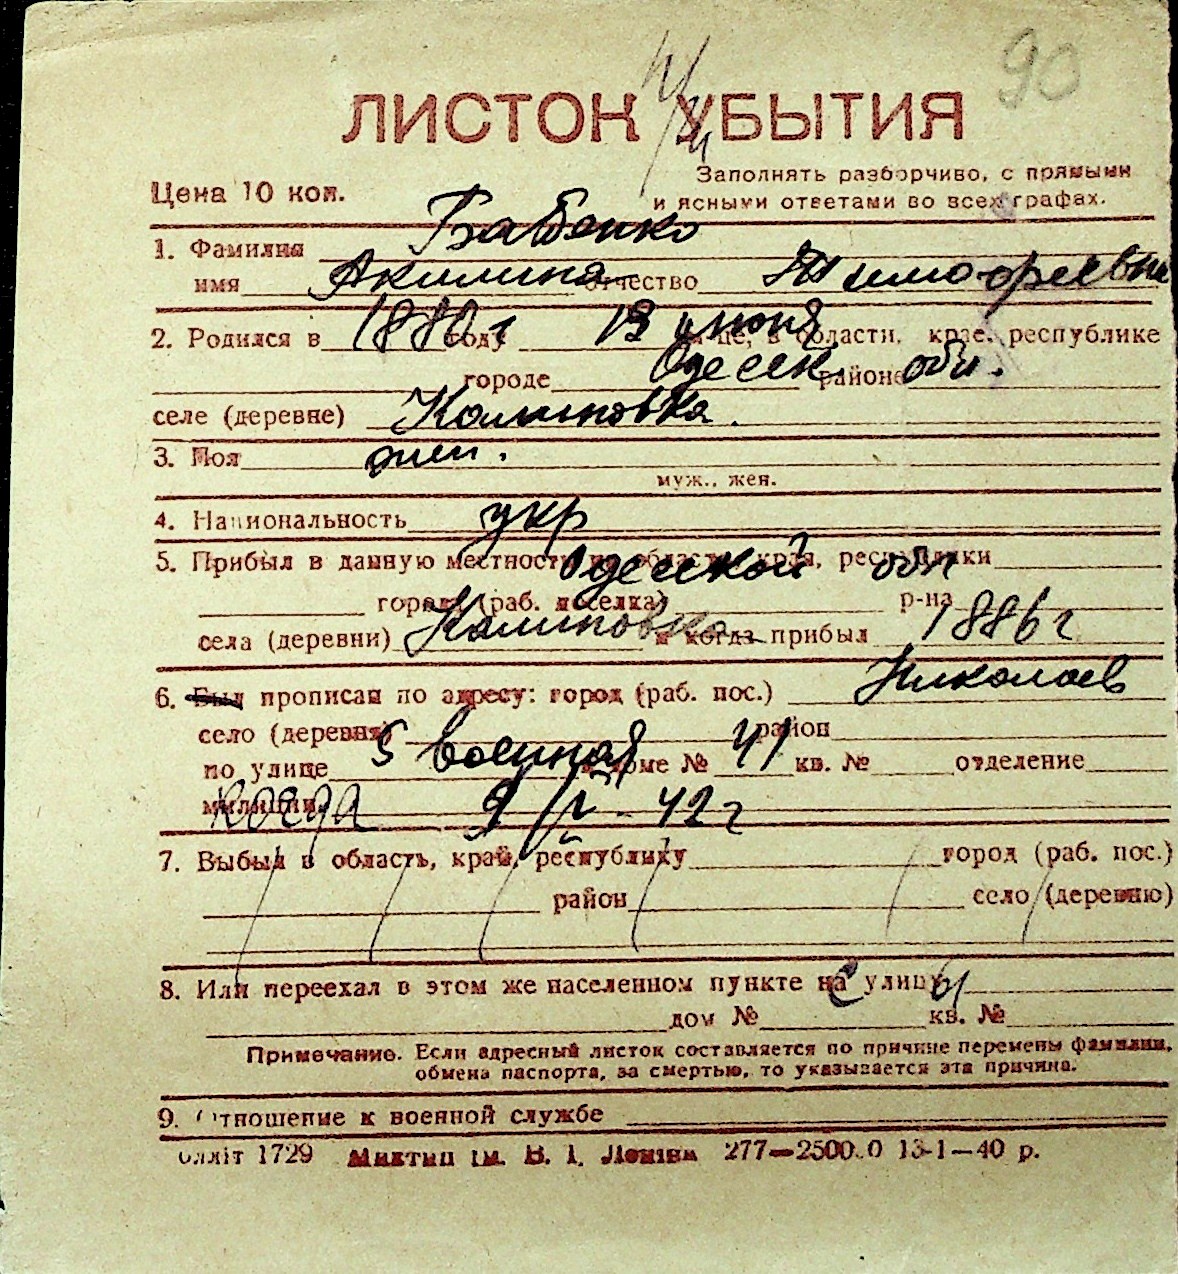 90
ЛИСТОК УБЫТИЯ
Цена 10 коп.
Заполнять разборчиво, с прямыми
и ясными ответами во всех графах.
1. Фамилия Бабенко
имя Акилина отчество Тимофеевна
2. Родился в 1886 г году 13 июня м-це, в области, крае, республике
городе Одесск. районе обл.
селе (деревне) Калиновка.
3. Пол жен.
муж., жен.
4. Национальность укр
5. Прибыл в данную местность из области, края, республики Одесской обл
города (раб. поселка) р-на
села (деревни) Калиновка и когда прибыл 1886 г
6. Был прописан по адресу: город (раб. пос.) Николаев
село (деревня) район
по улице 5 военная в доме № 41 кв. № отделение
милиции когда 9/IV - 42 г
7. Выбыл в область, край, республику город (раб. пос.)
район село (деревню)
8. Или переехал в этом же населенном пункте на улицу
дом № кв. №
Примечание. Если адресный листок составляется по причине перемены фамилии,
обмена паспорта, за смертью, то указывается эта причина.
9. Отношение к военной службе
облліт 1729 Миктип ім. В. І. Леніна 277—25000 13-1—40 р.